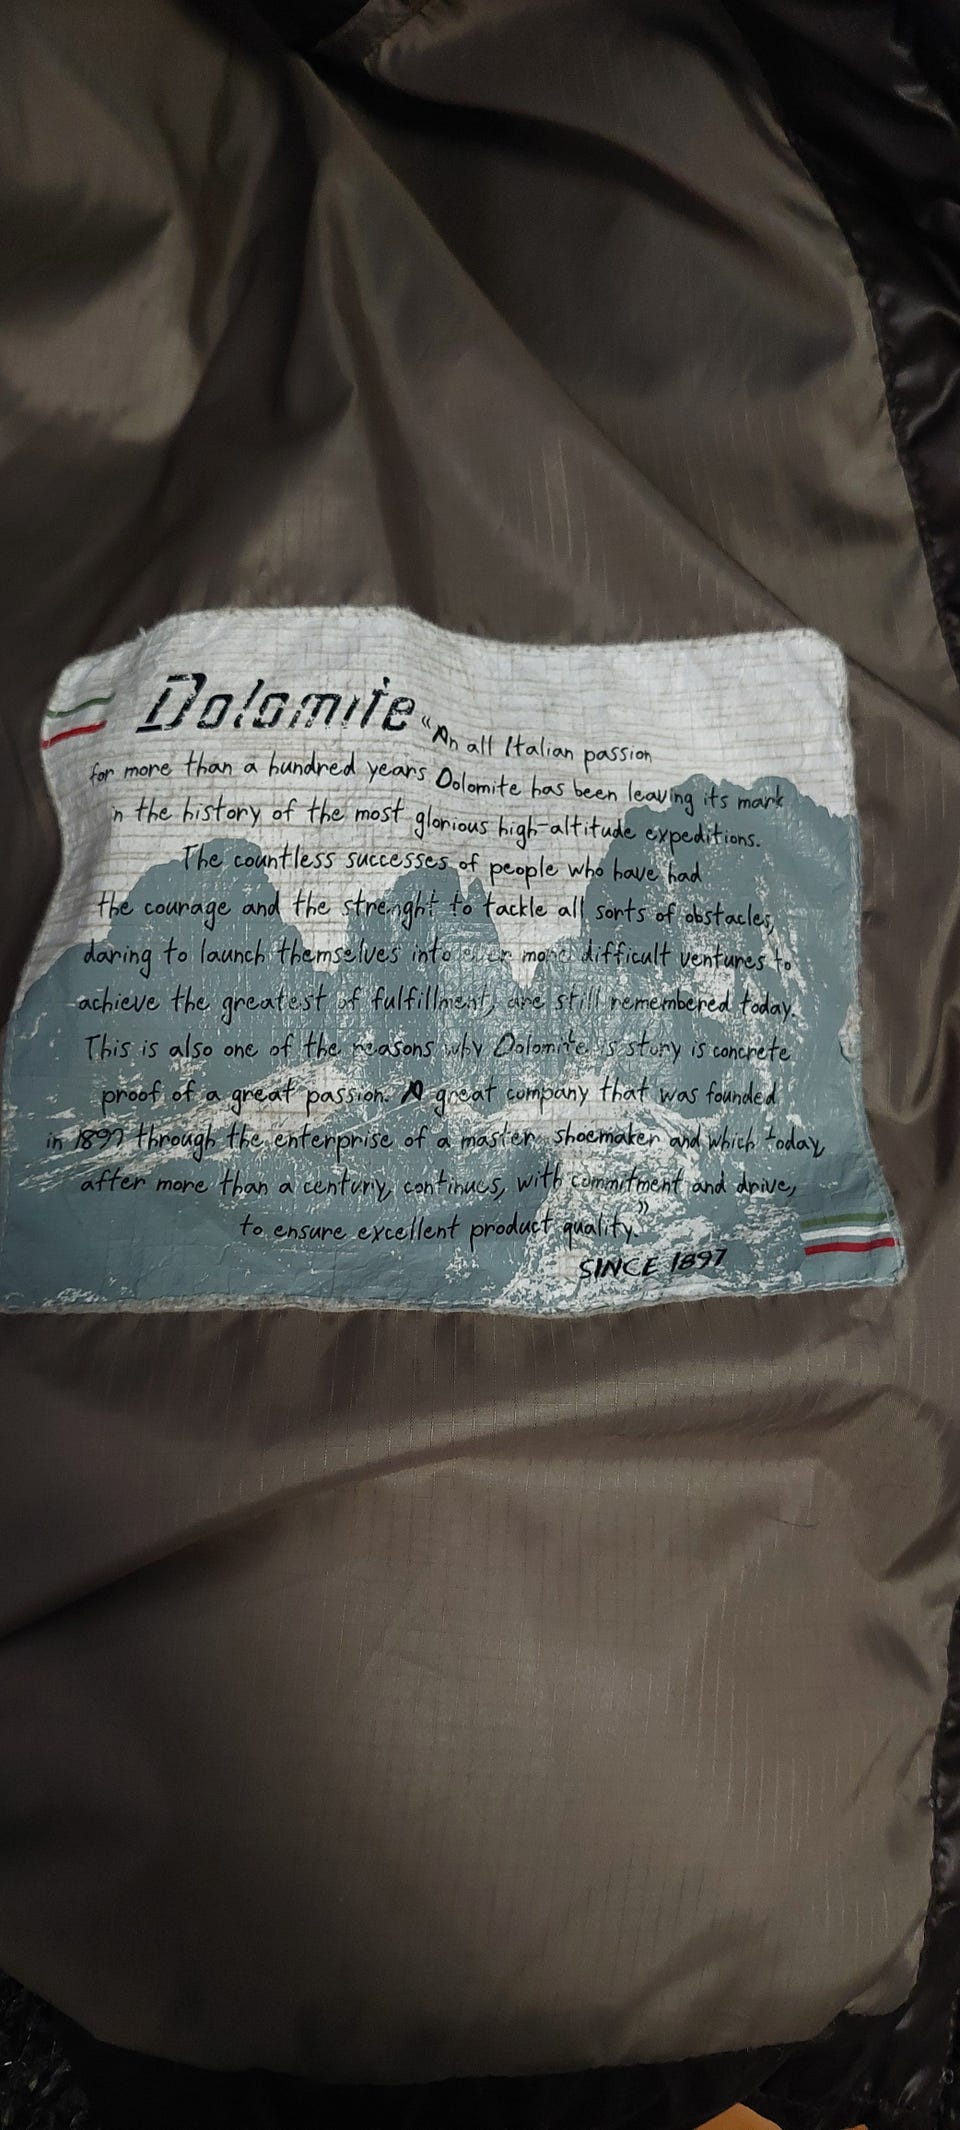 Dolomite "An all Italian passion
for more than a hundred years Dolomite has been leaving its mark
in the history of the most glorious high-altitude expeditions.
The countless successes of people who have had
the courage and the strenght to tackle all sorts of obstacles,
daring to launch themselves into ever more difficult ventures to
achieve the greatest of fulfillment, are still remembered today.
This is also one of the reasons why Dolomite is story is concrete
proof of a great passion. A great company that was founded
in 1897 through the enterprise of a master shoemaker and which today,
after more than a century, continues, with commitment and drive,
to ensure excellent product quality."
SINCE 1897